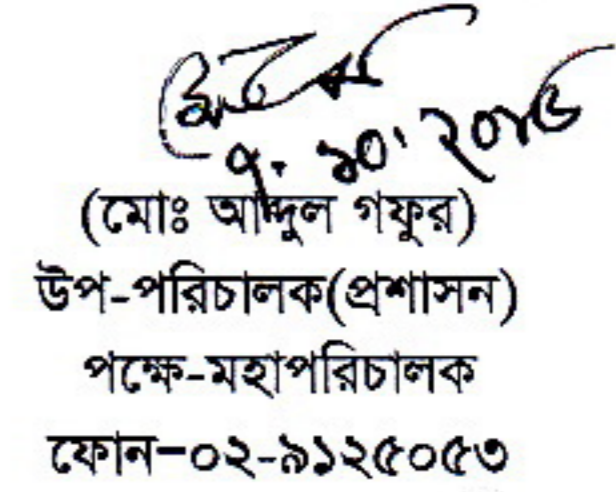 ৭.১০.২০১৮
(মোঃ আব্দুল গফুর)
উপ-পরিচালক(প্রশাসন)
পক্ষে-মহাপরিচালক
ফোন-০২-৯১২৫০৫৩